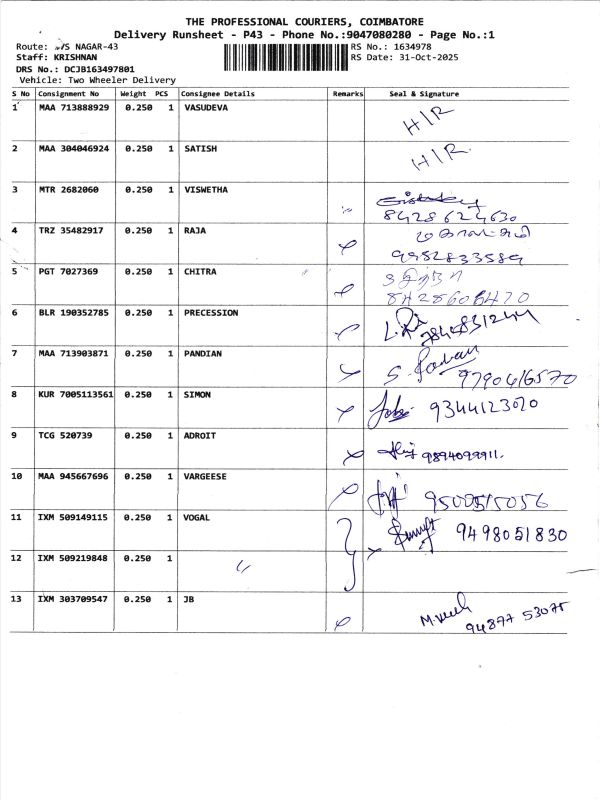 THE PROFESSIONAL COURIERS, COIMBATORE
Delivery Runsheet - P43 - Phone No.:9047080280 - Page No.:1
Route: VS NAGAR-43 RS No.: 1634978
Staff: KRISHNAN RS Date: 31-Oct-2025
DRS No.: DCJB163497801
Vehicle: Two Wheeler Delivery
S No Consignment No Weight PCS Consignee Details Remarks Seal & Signature
1 MAA 713888929 0.250 1 VASUDEVA H/R
2 MAA 304046924 0.250 1 SATISH H/R
3 MTR 2682060 0.250 1 VISWETHA
8428624630
4 TRZ 35482917 0.250 1 RAJA
9952833589
5 PGT 7027369 0.250 1 CHITRA
8428608470
6 BLR 190352785 0.250 1 PRECESSION
7 MAA 713903871 0.250 1 PANDIAN
9790416570
8 KUR 7005113561 0.250 1 SIMON 9344123020
9 TCG 520739 0.250 1 ADROIT 9894099911.
10 MAA 945667696 0.250 1 VARGEESE 9500515056
11 IXM 509149115 0.250 1 VOGAL 9498051830
12 IXM 509219848 0.250 1 〃
13 IXM 303709547 0.250 1 JB
94877 53075